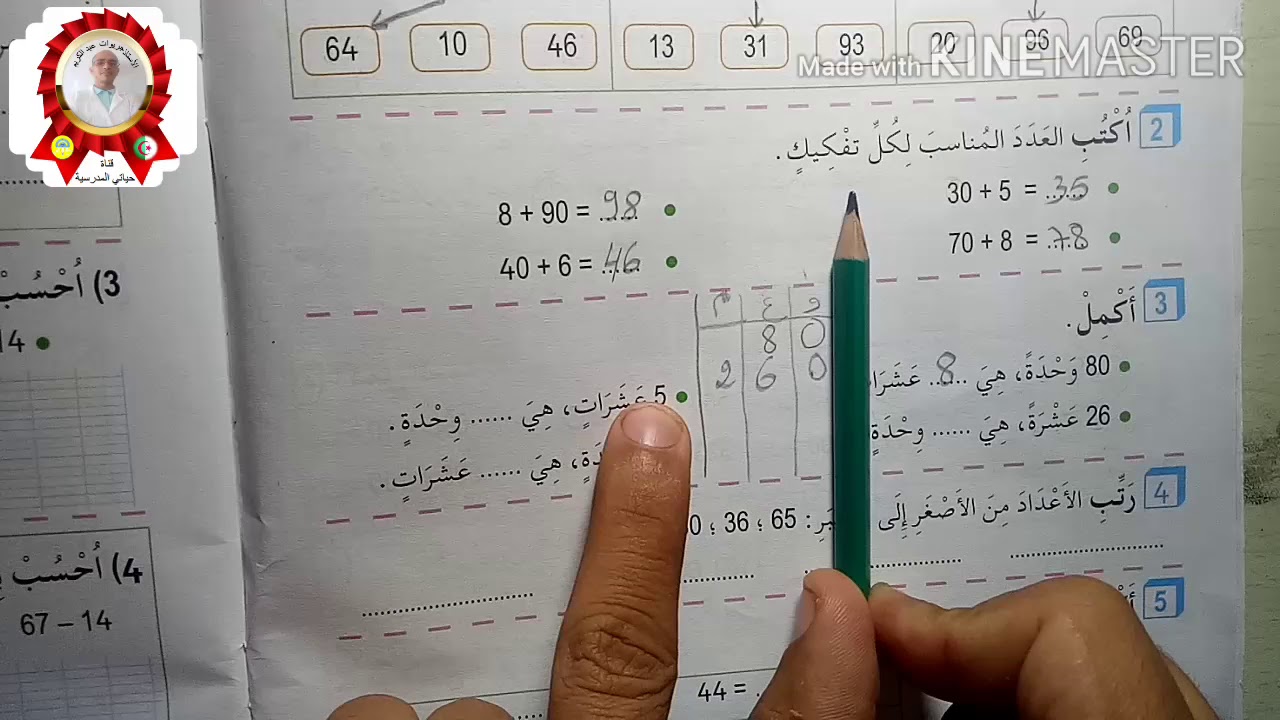 الأستاذ هريوات عبد الكريم
قناة
حياتي المدرسية
Made with KINEMASTER
64 10 46 13 31 93 20 96 69
2 اُكْتُبِ العَدَدَ المُناسبَ لِكُلِّ تفْكِيكٍ.
30 + 5 = 35
8 + 90 = 98
70 + 8 = 78
40 + 6 = 46
3 أَكْمِلْ.
م ع و
8 0
2 6 0
80 وَحْدَةً، هِيَ ..8.. عَشَرَا
26 عَشْرَةً، هِيَ ...... وِحْدَةٍ
5 عَشَرَاتٍ، هِيَ ...... وِحْدَةٍ.
دَةٍ، هِيَ ...... عَشَرَاتٍ.
4 رَتِّبِ الأَعْدَادَ مِنَ الأَصْغَرِ إِلَى بَرِ: 65 ؛ 36 ؛ 0
5
44 =
3) أُحْسُبْ
14
4) أُحْسُبْ
67 – 14